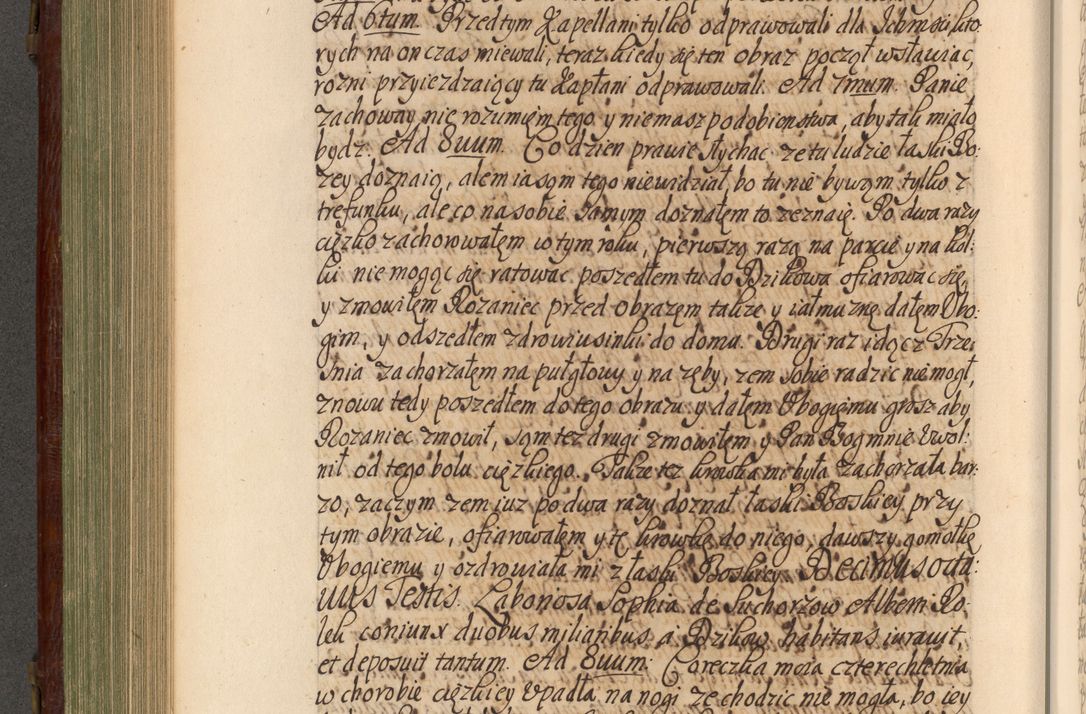 Ad 6tum. Przedtym Kapellani tylko odprawowali dla Ichmści, kto-
rych na on czas miewali, teraz kiedy się ten obraz począł wsławiac,
rozni przyiezdzaiący tu Kapłani odprawowali. Ad 7mum. Panie
zachoway nie rozumięm tego y niemasz podobieństwa, aby tak miało
bydz. Ad 8uum. Co dzien prawie słychac ze tu ludzie łaski Bo:
zey doznaią, alem ia sąm tego niewidział, bo tu nie bywąm tylko z
trefunku, ale co na sobie samym doznałem to zeznaię. Po dwa razy
cięzko zachorowałęm w tym roku, pierwszą razą na parcie y na kol:
ki nie mogąc się ratowac poszedłem tu do Dzikowa ofiarowac się,
y zmowiłęm Rozaniec przed obrazęm takze y iałmuznę dałęm Ubo:
gim, y odszedłem zdrowiusinki do domu. Drugi raz idącz Trze:
śnia zachorzałęm na puł głowy y na zęby, zem sobie radzic nie mogł,
znowu tedy poszedłem do tego obrazu y dałęm Ubogięmu grosz aby
Rozaniec zmowił, sąm tez drugi zmowiłęm y Pan Bog mnie Uwol:
nił od tego bolu cięzkiego. Takze tez krowka mi była zachorzała bar:
zo, zaczym zem iuz po dwa razy doznał łaski Boskiey przy
tym obrazie, ofiarowałęm y tę krowkę do niego, dawszy gomołkę
Ubogiemu y ozdrowiała mi z łaski Boskiey. Decimus octa:
uus Testis. Łabonosa Sophia de Suchorzow Alberti Ro:
lek coniunx duobus miliaribus a Dzikow habitans iurauit,
et deposuit tantum. Ad 8uum. Coreczka moia czterechletnia
w chorobie cięzkiey Upadła, na nogi ze chodzic nie mogła, bo iey